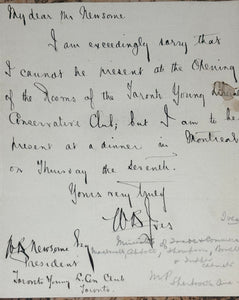 My dear Mr Newsome
I am exceedingly sorry that
I cannot be present at the Opening
of the Rooms of the Toronto Young Liberal
Conservative Club; but I am to be
present at a dinner in Montreal
on Thursday the Seventh.
Yours very truly
WB Ives
Ives
Minister of Trade & Commerce
Mackenzie Bowell
& Tupper
cabinets
M.P.
Sherbrooke Que
Newsome Esq
President
Toronto Young L. Con Club
Toronto.